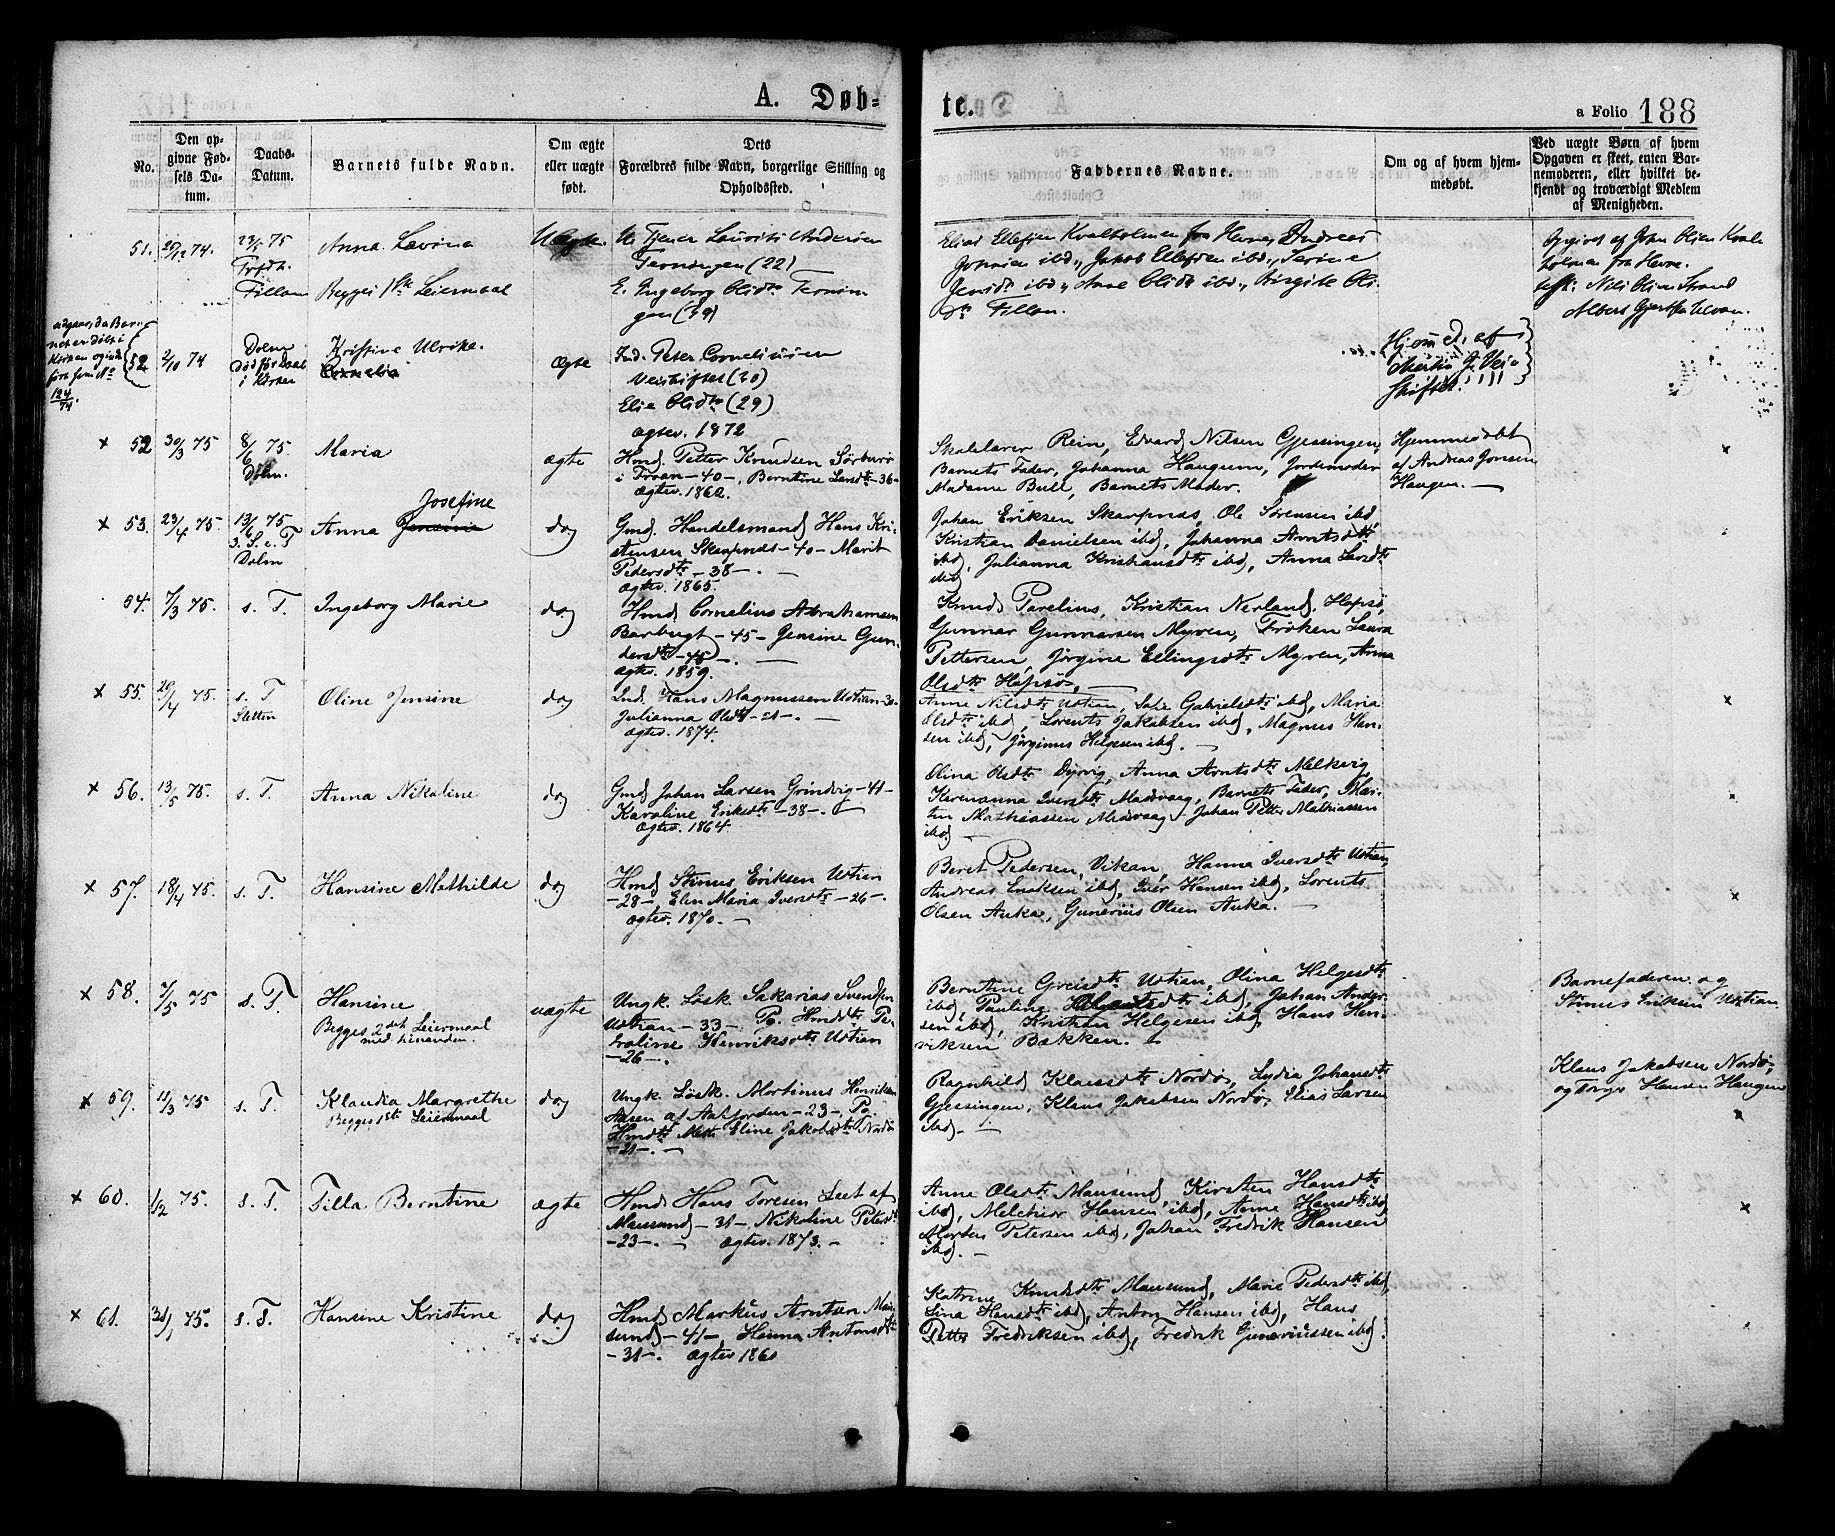 A. Døb-
te.
a Folio 188
No.
Den op-
givne Fød-
sels Da-
tum.
Daabs-
Datum.
Barnets fulde Navn.
Om ægte
eller uægte
født.
Dets
Forældres fulde Navn, borgerlige Stilling og
Opholdssted.
Faddernes Navne.
Om og af hvem hjem-
medøbt.
Ved uægte Børn af hvem
Opgaven er skeet, enten Bar-
nemoderen, eller hvilket be-
kjendt og troværdigt Medlem
af Menigheden.
51. 20/12 74.
23/5 75
Fillan
Anna Lovina
Begges 1ste Leiermaal
Uægte.
U. Tjener Laurits Andersen
Terningen (22)
E. Ingeborg Olsdtr Ternin
gen (39)
Elias Ellefsen Kvalholmen fra Hevne, Andreas
Johnsen ibd., Jakob Ellefsen ibd., Serine
Jensdtr ibd., Ane Olsdtr ibd., Birgite Ol.
Fillan.
Opgivet af John Olsen Kval
holmen fra Hevne.
Nils Olsen Strand
udgaar, da Bar
net er døbt i
Kirken og ind-
ført som No
124/74.
52 2/10 74
Dolm
død før Daab
i Kirken
Kristine Ulrike.
Cornelia
Ægte
Ind. Peter Corneliussen
Veiskiftet (30)
Elie Olsdtr (29)
Ægtev. 1872
Hjemed. af
x 52 30/3 75
8/6 75
Dolm.
Maria
ægte
Hmd. Petter Knudsen Sørburø
i Froan - 40 -, Berntine Larsdtr - 36 -
Ægtev. 1862.
Skolelærer Rein, Edvard Nilsen Gjessingen,
Barnets Fader, Johanna Haugum, Jordemoder
Madame Bull, Barnets Moder.
Hjemmedøbt
af Andreas Jonsen
Haugen. -
x 53. 23/4 75.
13/6 75
3. S. e. T
Dolm
Josefine
Anna Jensine
do
Gmd. Handelsmand Hans Kri-
stensen Skarpnæs - 40 - Marit
Pedersdtr - 38 -.
Ægtev. 1865.
Johan Eriksen Skarpnæs, Ole Sørensen ibd,
Kristian Danielsen ibd, Johanna Arntsdtr
ibd, Julianna Kristiansdtr ibd, Anna Larsdtr
ibd
54. 7/3 75. s. T. Ingeborg Marie
do
Hmd Cornelius Abrahamsen
Barbugt - 45 - Jensine Gun-
dersdtr - 45 -.
Ægtev. 1859.
Knud Parelius, Kristian Nerland, Hopsø,
Gunnar Gunnarsen Myren, Frøken Laura
Pettersen, Jørgine Ellingsdtr Myren, Anna
Olsdtr Hopsø. -
x 55. 29/4 75. s. T
Sletten
Oline Jensine
do
Ind. Hans Magnussen Ustian - 30 -
Julianna Olsdtr - 21 -.
Ægtev. 1874.
Anne Nilsdtr Ustian, Gabrielsdtr ibd, Maria
Olsdtr ibd, Lorents Jakobsen ibd, Magnus Han-
sen ibd, Jørginus Helgesen ibd. -
x 56. 13/5 75. s. T. Anna Nikoline
do
Gmd Johan Larsen Grindvig - 41 -
Karoline Eriksdtr - 38 -.
Ægtev. 1864
Olina Olsdtr Dyrvig, Anna Arntsdtr Melkvig
Karenanna Iversdtr Madsvaag, Barnets Fader, Mar-
tin Mathiassen Madsvaag, Johan Petter Mathiassen
ibd
x 57. 18/4 75. s. T. Hansine Mathilde
do
Hmd Stinus Eriksen Ustian
- 28 -, Elen Maria Iversdtr - 26 -.
Ægtev. 1870. -
Beret Pedersen, Vikan, Hanna Iversdtr Ustian,
Andreas Isaksen ibd, Iver Hansen ibd, Lorents
Olsen Auka, Gunerius Olsen Auka. -
x 58. 7/5 75 s. T. Hansine
Begges 2det Leiermaal
med hinanden.
uægte
Ungk. Løsk. Sakarias Svendsen
Ustian - 33 -. Po. Hmdsdtr Pe-
troline Henriksdtr Ustian
- 26 -.
Berntine Greisdtr Ustian, Olina Helgesdtr
ibd, Pauline ibd, Johan Ander-
sen ibd, Kristian Helgesen ibd, Hans Hen-
riksen Bækken.
Barnefaderen og
Stinus Eriksen Ustian
x 59. 11/3 75 s. T. Klaudia Margrethe
Begges 1ste Leiermaal
do
Ungk. Løsk. Martinus Henriksen
Aasen af Aafjorden - 23 -, Po.
Hmdtr Mette Eline Jakobsdtr Nordø
- 21 -. -
Ragnhild Klausdtr Nordø, Lydia Johansdtr
Gjessingen, Klaus Jakobsen Nordø, Elias Larsen
ibd -
Klaus Jakobsen Nordø,
og Hansen Haugen
x 60. 1/2 75. s. T. Tilla Berntine
ægte
Hmd. Hans Toresen Leet af
Mausund - 31 -, Nikoline Petersdtr
- 23 -. - Ægtev. 1873. -
Anne Olsdtr Mausund, Kirsten Hansdtr
ibd, Melchior Hansen ibd, Anne Hansdtr ibd
Morten Petersen ibd, Johan Fredrik Hansen
ibd. -
x 61. 31/1 75. s. T. Hansine Kristine
do
Hmd Markus Arntsen Mau-
sund - 41 -, Hanna Antonsdtr
- 31 -. Ægtev 186
Katrine Knudsdtr Mausund, Marie Pedersdtr ibd,
Lina Hansdtr ibd, Anton Hansen ibd, Hans
Petter Fredriksen ibd, Fredrik Gunariussen ibd.